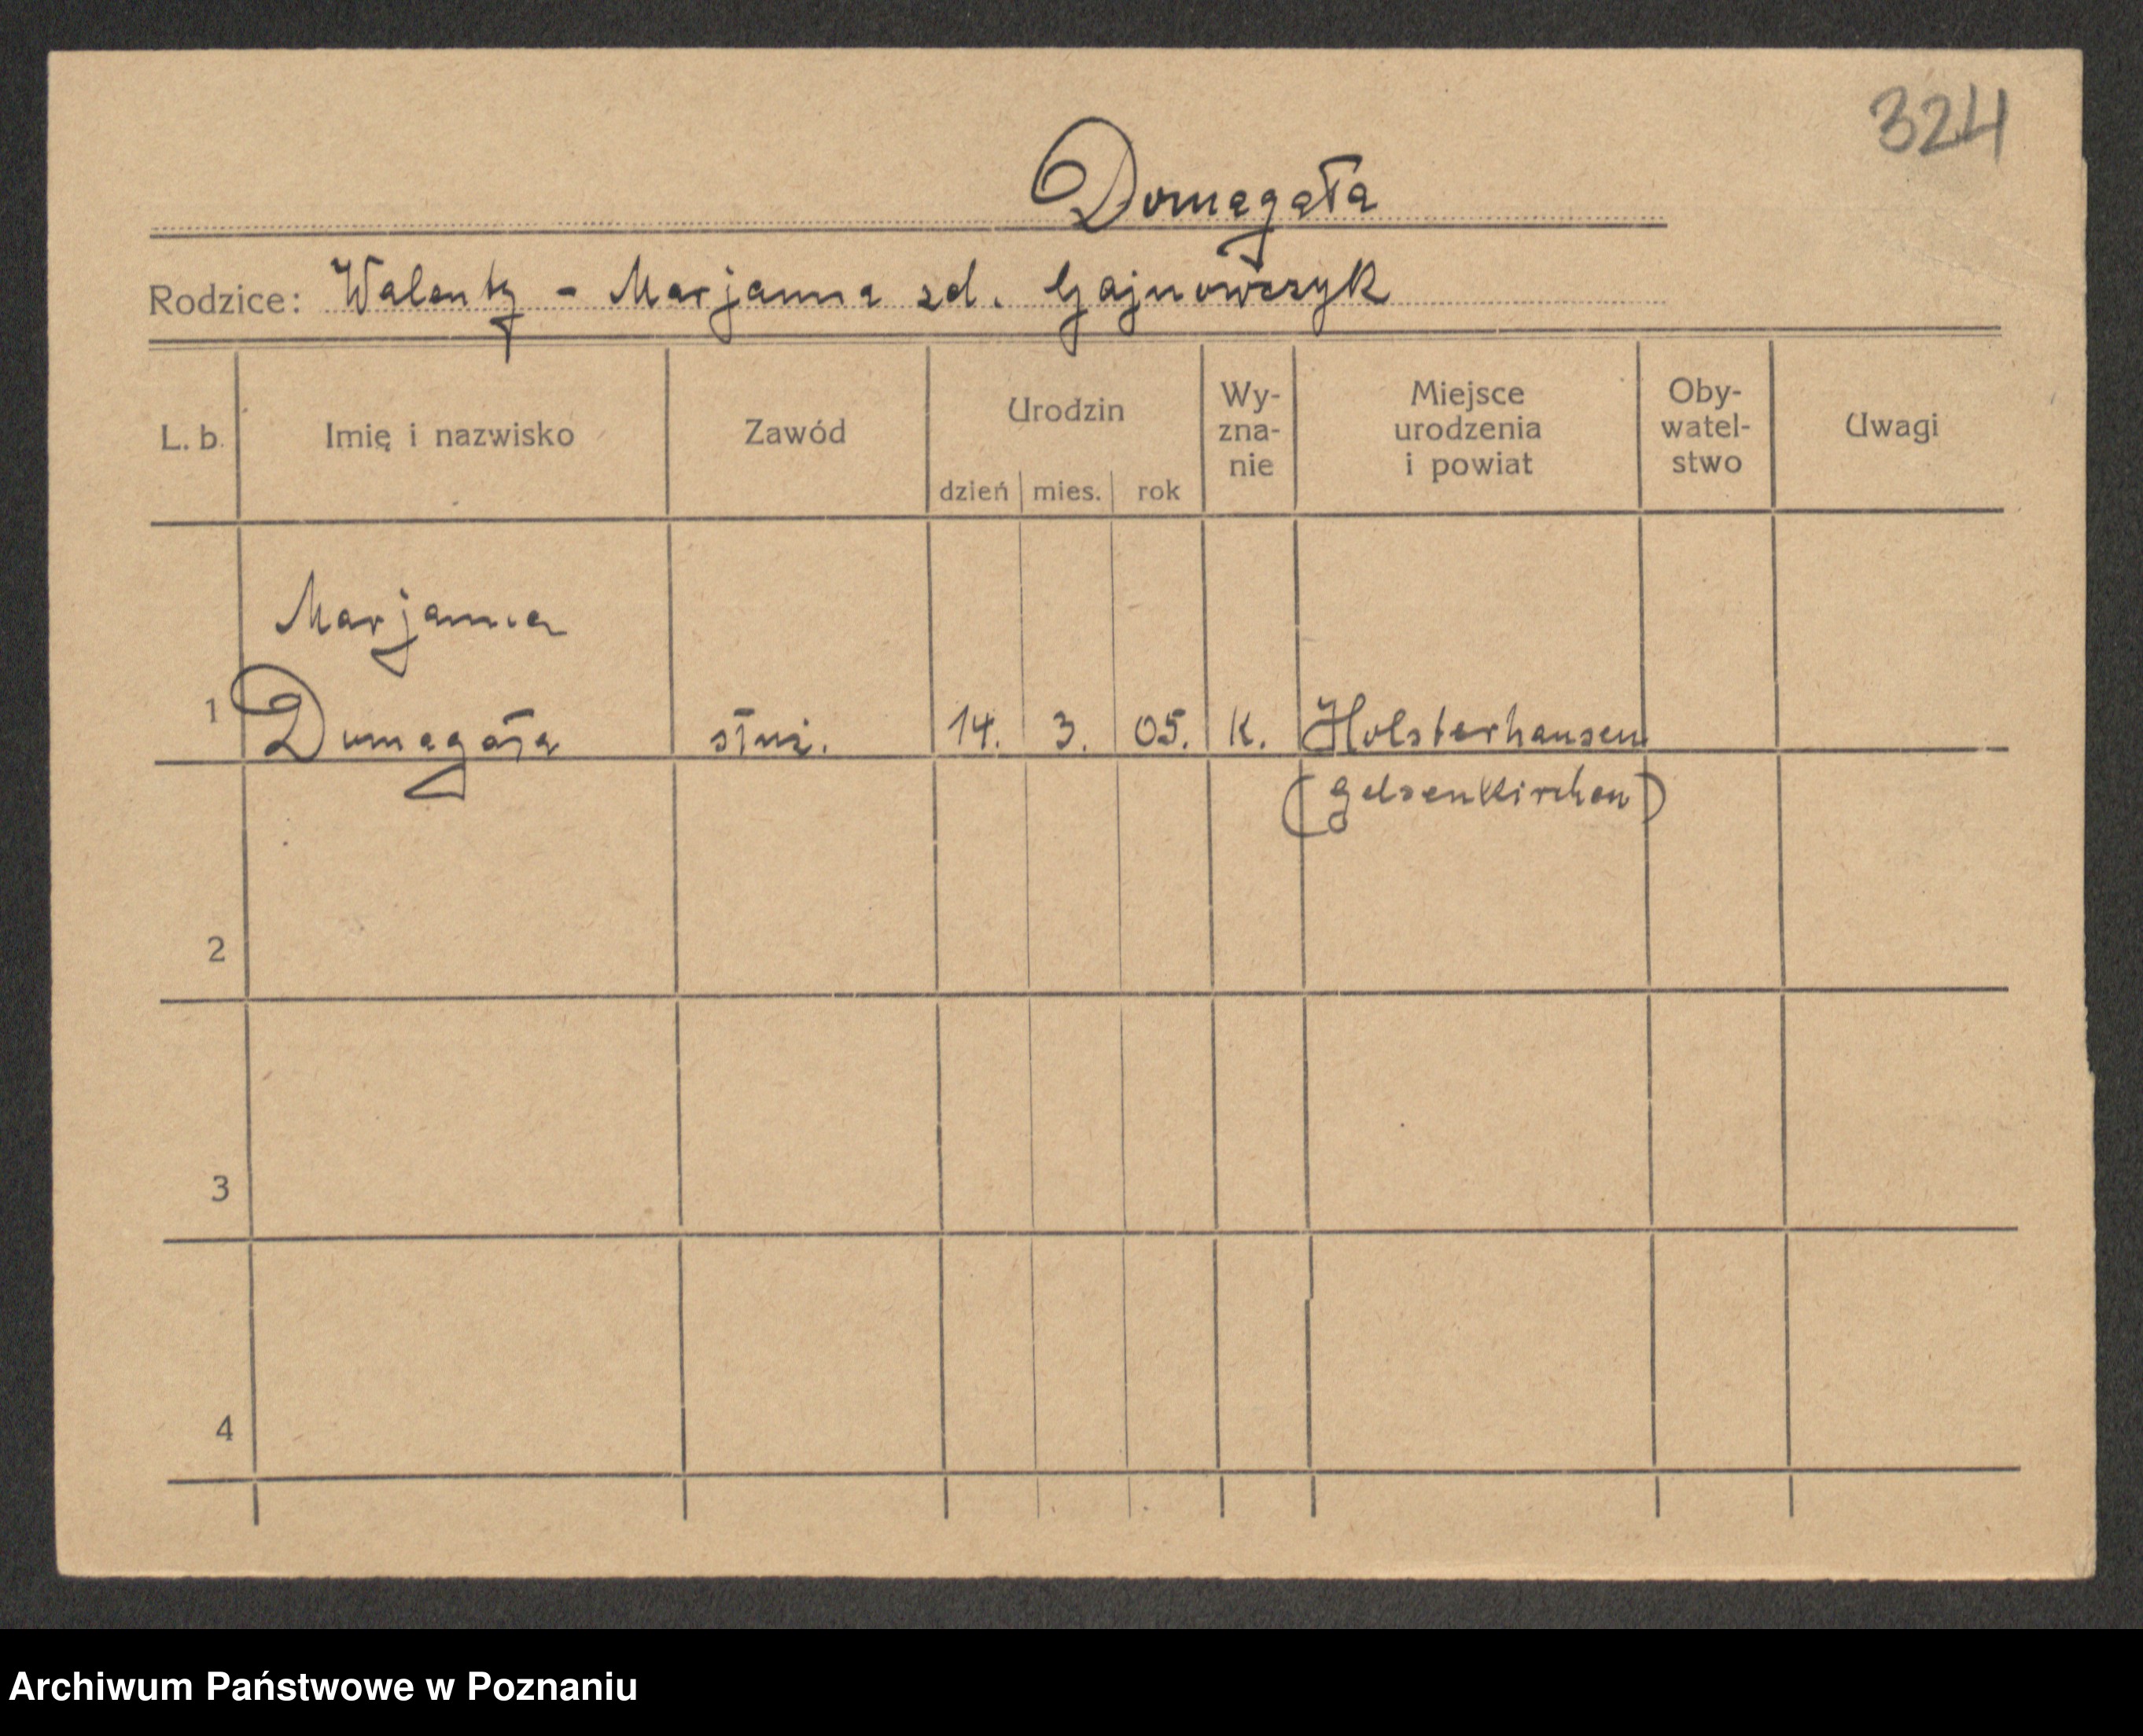 324
Domagała
Rodzice: Walenty - Marjanna zd. Gajnowczyk
L. b. Imię i nazwisko Zawód Urodzin dzień mies. rok Wy-zna-nie Miejsce urodzenia i powiat Oby-watel-stwo Uwagi
Marjanna
1 Domagała służ. 14. 3. 05. K. Holsterhausen
(Gelsenkirchen)
2
3
4
Archiwum Państwowe w Poznaniu